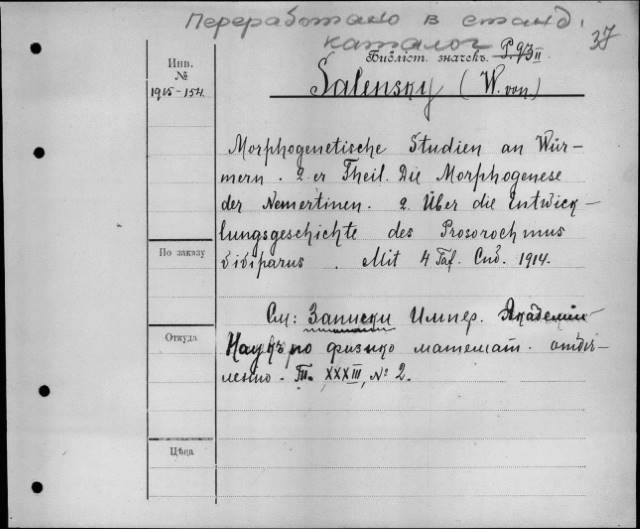 Переработано в станд.
каталог
37
Библіот. значекъ. P.93 II
Инв.
№
1915-154.
Salensky (W. von)
Morphogenetische Studien an Wür-
mern. 2er Theil. Die Morphogenese
der Nemertinen. 2. Über die Entwick-
lungsgeschichte des Prosorochmus
viviparus. Mit 4 Taf. Спб. 1914.
По заказу
См: Записки Импер. Академіи
Наукъ по физико математ. отдѣ-
ленію. Т. XXXIII, № 2.
Откуда
Цѣна